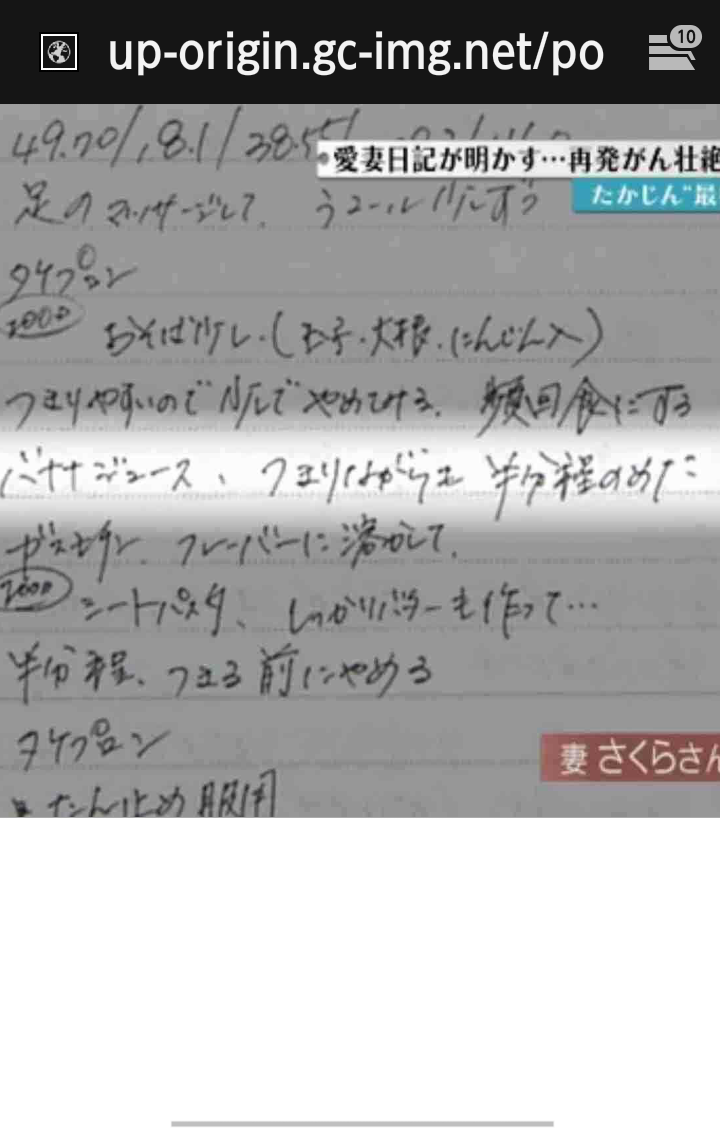 up-origin.gc-img.net/po
10
49.70/18.1/38.55/
愛妻日記が明かす…再発がん壮絶
たかじん"最
足のマッサージして、
タケプロン
2000 おそば少し・(玉子・大根・にんじん入)
つまりやすいので少しでやめてみる。頻回食にする
バナナジュース、つまりながらも半分程のめた
フレーバーに溶かして、
2000 ミートパスタ、しっかりバターも作って…
半分程、つまる前にやめる
タケプロン
妻 さくらさん
たん止め服用